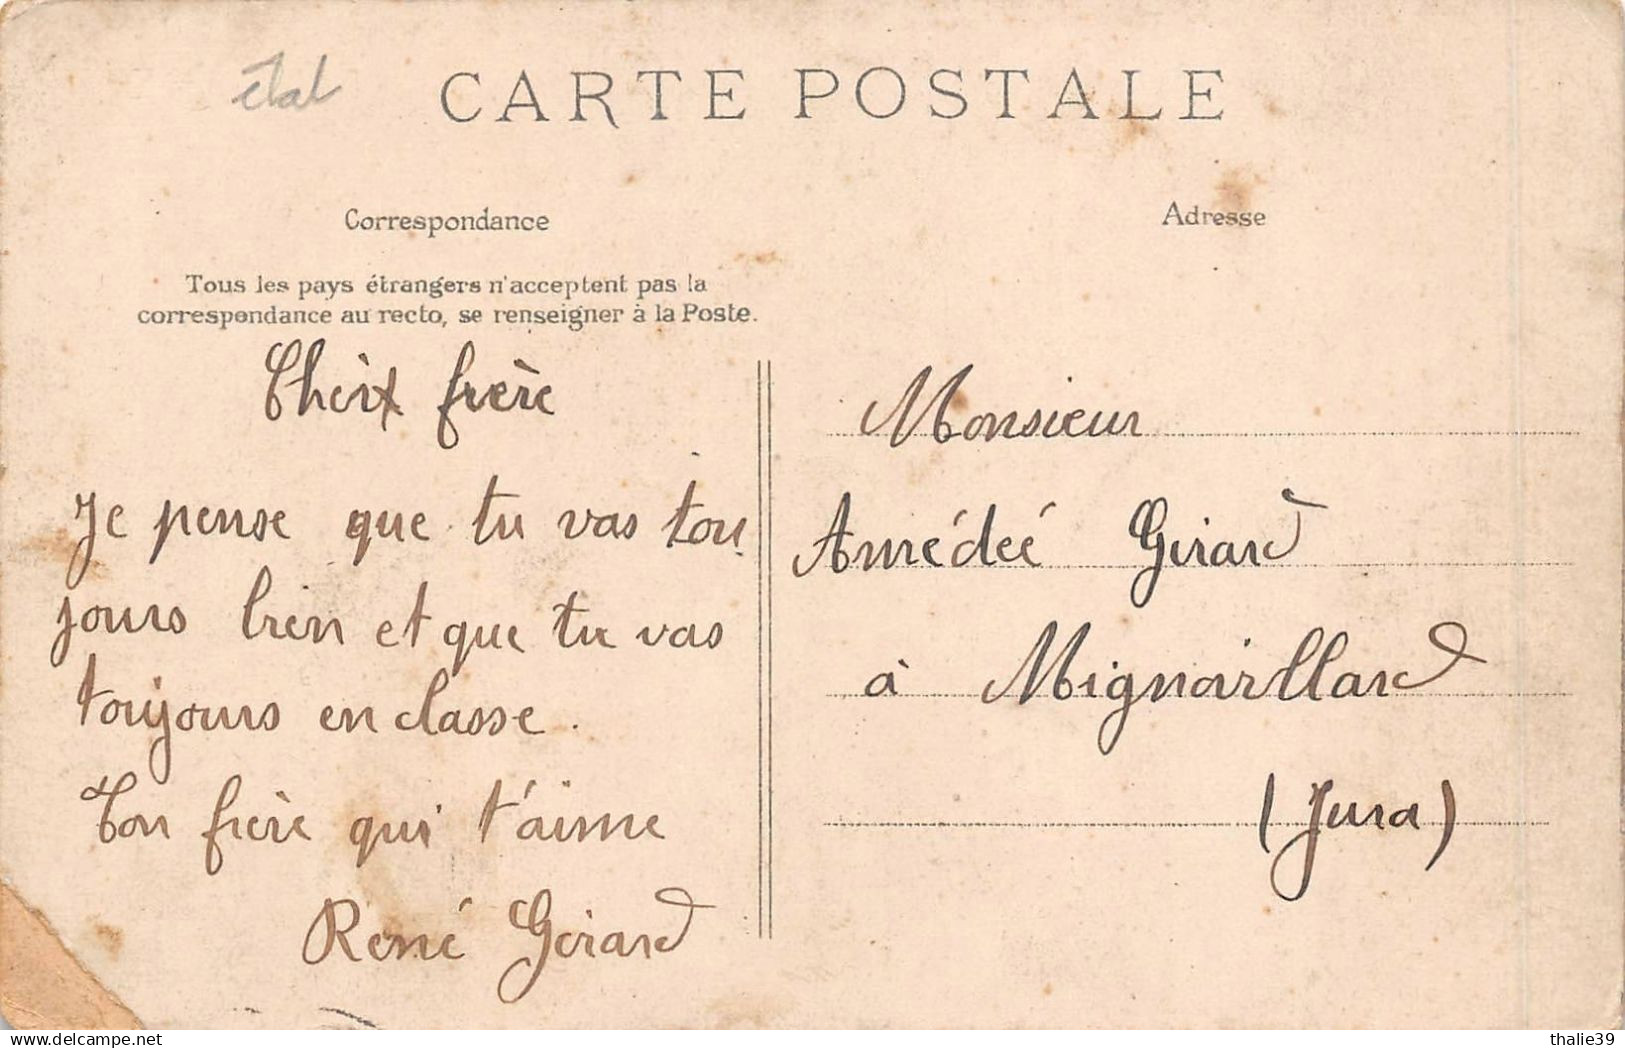 état
CARTE POSTALE
Correspondance
Adresse
Tous les pays étrangers n'acceptent pas la
correspondance au recto, se renseigner à la Poste.
frère
Je pense que tu vas tou
jours bien et que tu vas
toujours en classe.
Ton frère qui t'aime
René Girard
Monsieur
Amédéé Girard
à Mignovillard
(Jura)
www.delcampe.net
thalie39